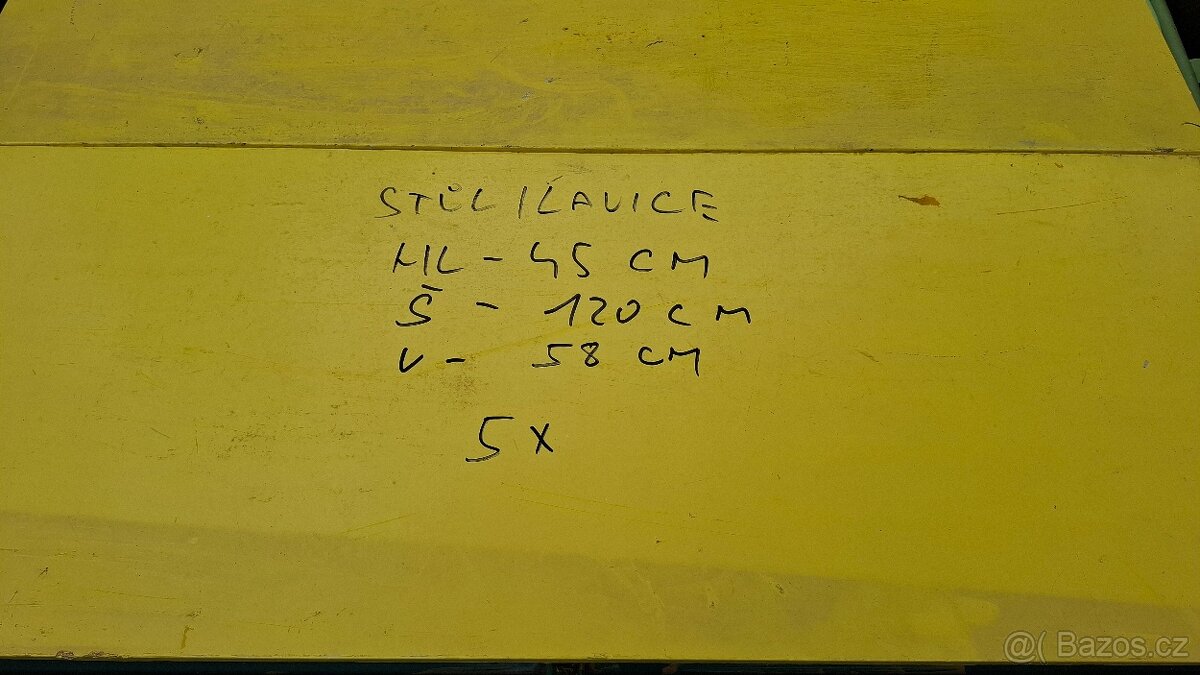 STŮL/LAVICE
HL - 45 CM
Š - 120 CM
V - 58 CM
5x
@( Bazos.cz